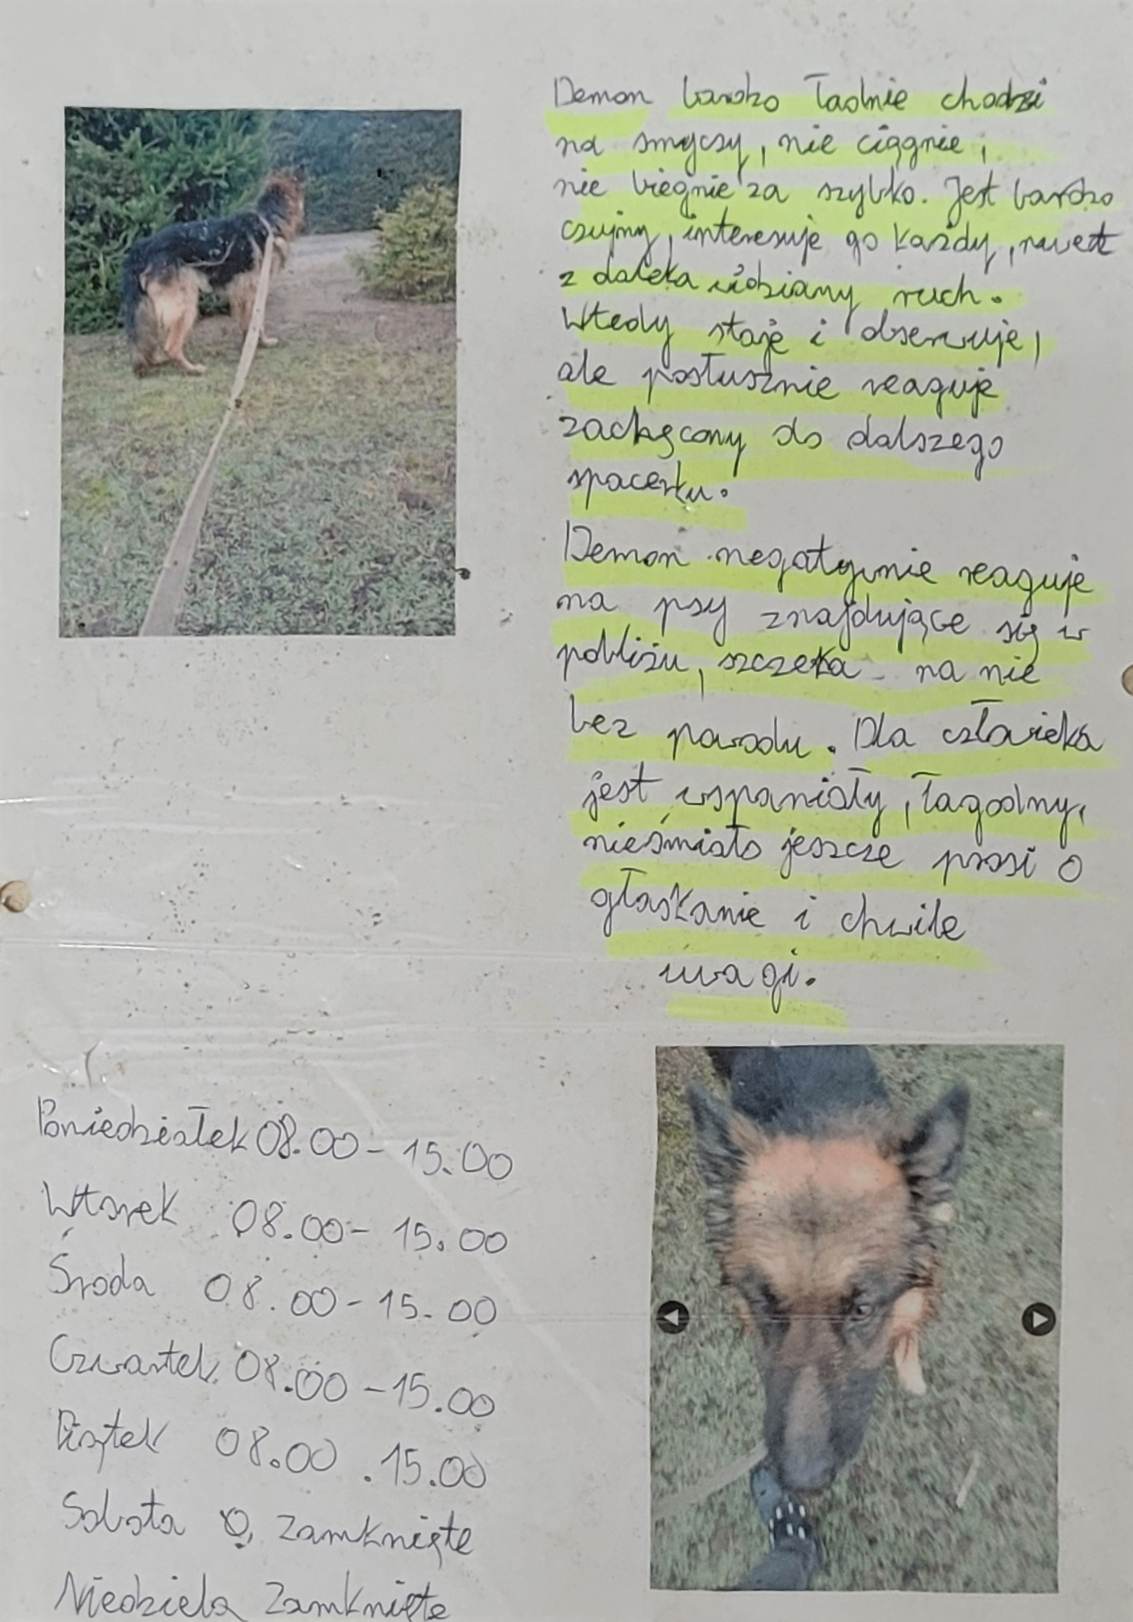 Demon bardzo ładnie chodzi
na smyczy, nie ciągnie,
nie biegnie za szybko. Jest bardzo
czujny, interesuje go każdy, nawet
z daleka widziany ruch.
Wtedy staje i obserwuje,
ale posłusznie reaguje
zachęcony do dalszego
spacerku.
Demon negatywnie reaguje
na psy znajdujące się w
pobliżu, szczeka na nie
bez powodu. Dla człowieka
jest wspaniały, łagodny,
nieśmiało jeszcze prosi o
głaskanie i chwile
uwagi.
Poniedziałek 08.00 - 15.00
Wtorek 08.00 - 15.00
Środa 08.00 - 15.00
Czwartek 08.00 - 15.00
Piątek 08.00 . 15.00
Sobota Zamknięte
Niedziela Zamknięte